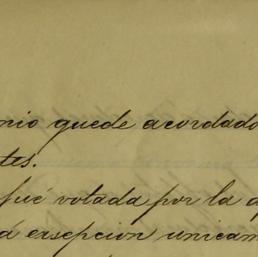 nio quede acordado
tes.
fué votada por la a
a ersepcion unicam